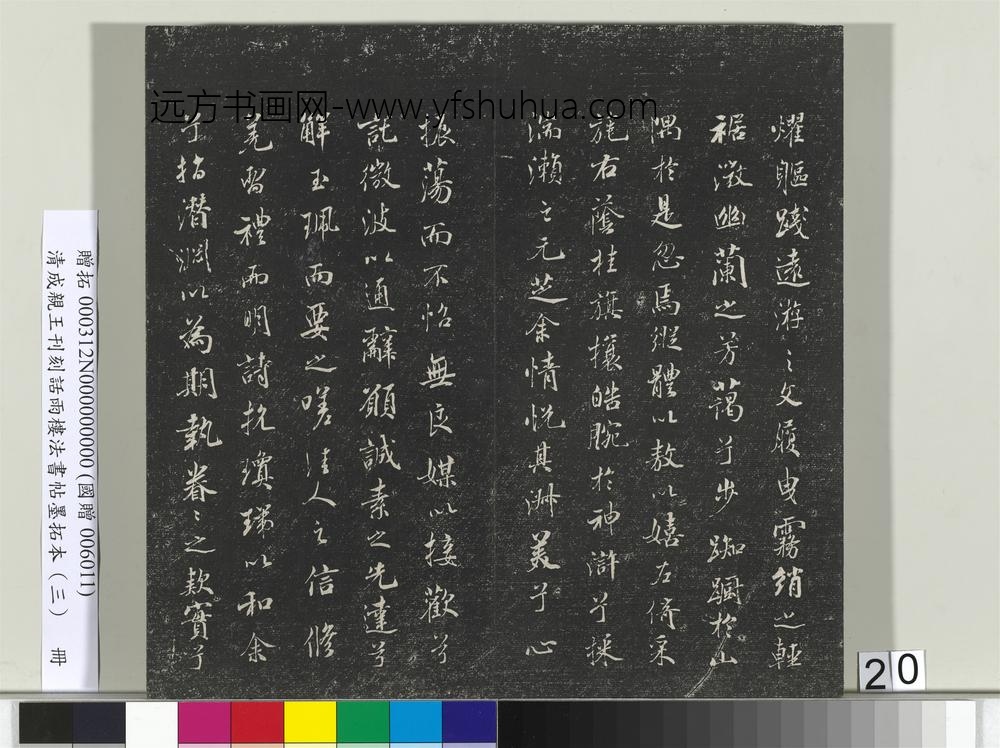 耀軀踐遠游之文履曳霧綃之輕
裾微幽蘭之芳藹兮步踟躕於山
隅於是忽焉縱體以敖以嬉左倚采
旄右蔭桂旗攘皓腕於神滸兮採
湍瀨之玄芝余情悅其淑美兮心
振蕩而不怡無良媒以接歡兮
託微波以通辭願誠素之先達兮
解玉珮而要之嗟佳人之信脩
羌習禮而明詩抗瓊珶以和余
兮指潛淵以為期執眷〻之款實兮
远方书画网-www.yfshuhua.com
贈拓 000312N000000000 (國贈 006011)
清成親王刊刻話雨樓法書帖墨拓本（三） 冊
20